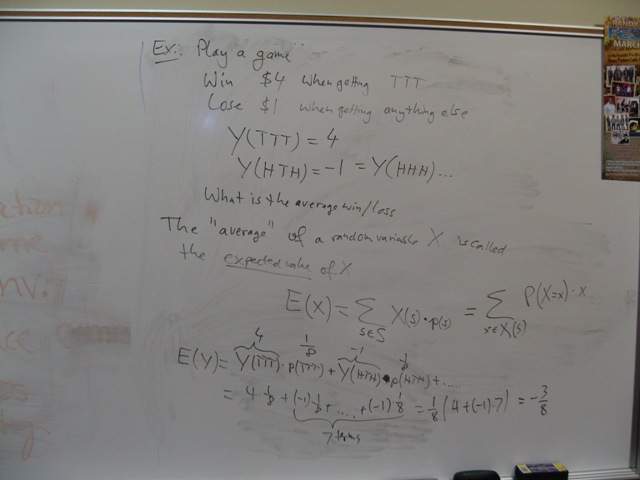 Ex: Play a game
Win $4 when getting TTT
Lose $1 when getting anything else
Y(TTT) = 4
Y(HTH) = -1 = Y(HHH)...
What is the average win/loss
The "average" of a random variable X is called
the expected value of X
E(X) = ∑_{s∈S} X(s)·p(s) = ∑_{x∈X(S)} P(X=x)·x
4 1/8 -1 1/8
E(Y) = Y(TTT)·p(TTT) + Y(HTH)·p(HTH) + .....
= 4 1/8 + (-1) 1/8 + .... + (-1) 1/8 = 1/8 (4 + (-1)·7) = -3/8
7 terms
nv.
MARCH